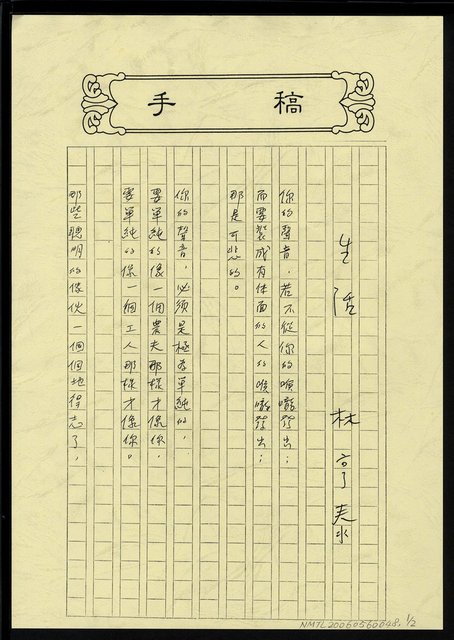 手稿
生活 林亨泰
你的聲音，若不從你的喉嚨發出；
而要裝成有体面的人的喉嚨發出；
那是可悲的。
你的聲音，必須是極為單純的，
要單純的像一個農夫那樣才像你，
要單純的像一個工人那樣才像你。
那些聰明的傢伙一個個地得志了，
NMTL20060560048, 1/2